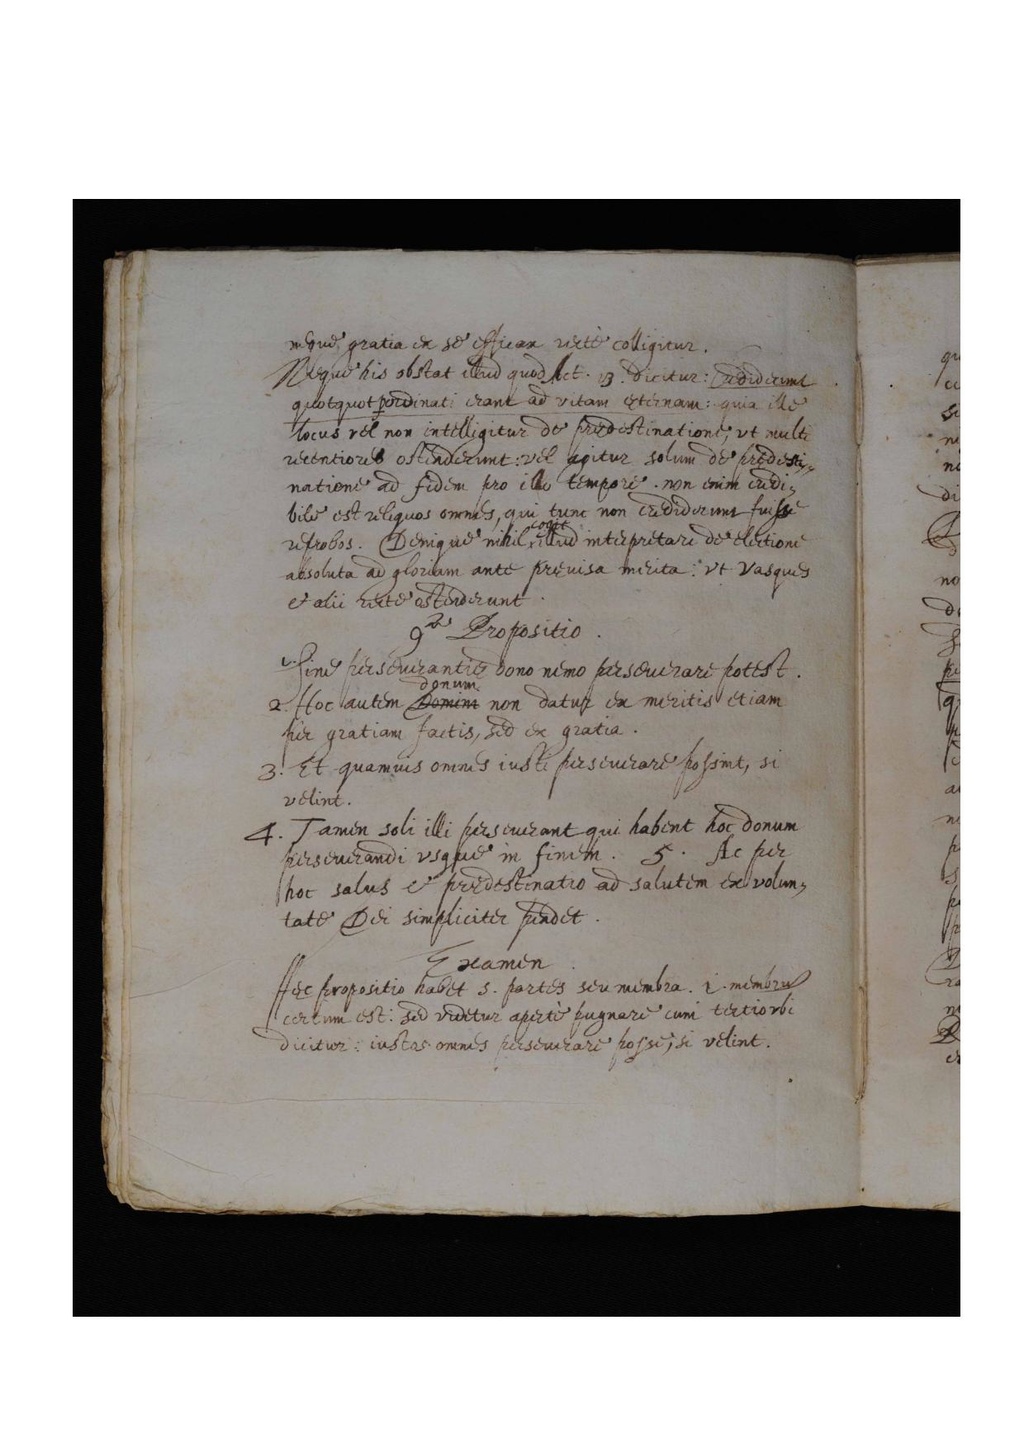 neque gratia ex se efficax rectè colligitur.
Neque his obstat illud quod Act. 13. dicitur: Crediderunt
quotquot preordinati erant ad vitam ęternam: quia ille
locus vel non intelligitur de prędestinatione, vt multi
recentiores ostenderunt: vel agitur solum de prędesti,,
natione ad fidem pro illo tempore. non enim credi,,
bile est reliquos omnes, qui tunc non crediderunt fuisse
reprobos. Denique nihil cogit illud interpretari de electione
absoluta ad gloriam ante pręuisa merita: vt Vasques
et alii rectè ostenderunt.
9a Propositio.
1. Sine perseuerantię dono nemo perseuerare potest.
2. Hoc autem Domini donum non datur ex meritis etiam
per gratiam factis, sed ex gratia.
3. Et quamuis omnes iusti perseuerare possint, si
velint.
4. Tamen soli illi perseuerant qui habent hoc donum
perseuerandi vsque in finem. 5. Ac per
hoc salus et prędestinatio ad salutem ex volun,,
tate Dei simpliciter pendet.
Examen
Hęc propositio habet 5. partes seu membra. 1. membrum
certum est: sed videtur apertè pugnare cum tertio vbi
dicitur: iustos omnes perseuerare posse, si velint.